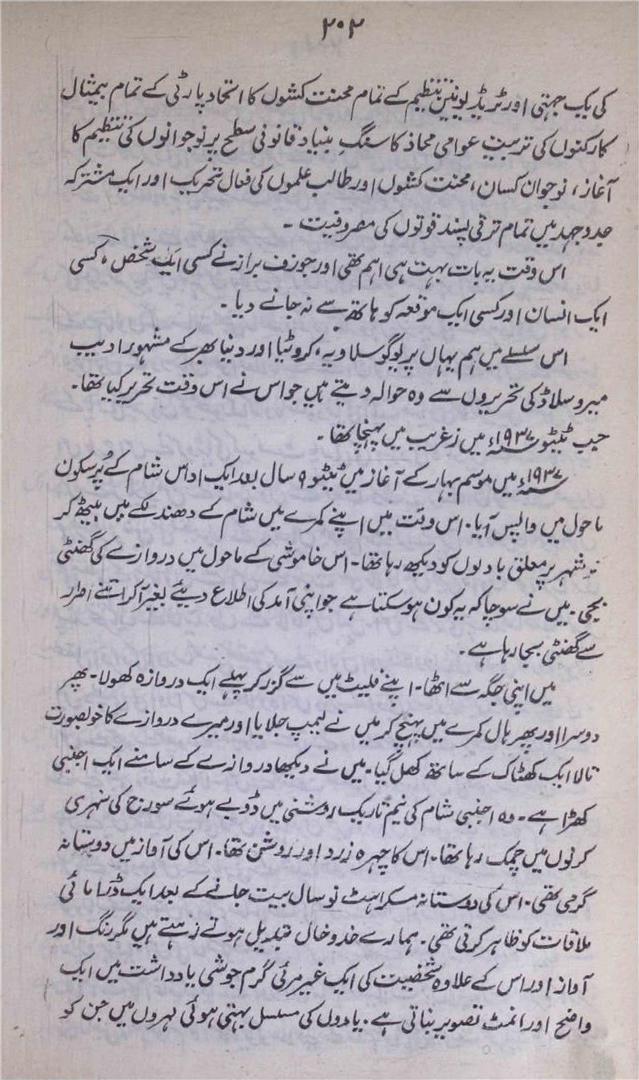 ۲۰۲
کی یک جہتی اور ٹریڈ یونین تنظیم کے تمام محنت کشوں کا اتحاد پارٹی کے تمام بیمثال
کارکنوں کی تربیت عوامی محاذ کا سنگِ بنیاد قانونی سطح پر نوجوانوں کی تنظیم کا
آغاز، نوجوان کسان، محنت کشوں اور طالب علموں کی فعال تحریک اور ایک مشترکہ
جدوجہد میں تمام ترقی پسند قوتوں کی مصروفیت ۔
اس وقت یہ بات بہت ہی اہم تھی اور جوزف براز نے کسی ایک شخص، کسی
ایک انسان اور کسی ایک موقعہ کو ہاتھ سے نہ جانے دیا ۔
اس سلسلے میں ہم یہاں پر یوگوسلاویہ، کروٹیا اور دنیا بھر کے مشہور ادیب
میروسلاڈ کی تحریروں سے وہ حوالہ دیتے ہیں جو اس نے اس وقت تحریر کیا تھا۔
جب ٹیٹو ۱۹۳۷ء میں زغریب میں پہنچا تھا ۔
۱۹۳۷ء میں موسم بہار کے آغاز میں ٹیٹو ۹ سال بعد ایک اداس شام کے پُرسکون
ماحول میں واپس آیا۔ اس وقت میں اپنے کمرے میں شام کے دھندلکے میں بیٹھ کر
شہر پر معلق بادلوں کو دیکھ رہا تھا ۔ اس خاموشی کے ماحول میں دروازے کی گھنٹی
بجی۔ میں نے سوچا کہ یہ کون ہو سکتا ہے جو اپنی آمد کی اطلاع دیئے بغیر آ کر اتنے اطرار
سے گھنٹی بجا رہا ہے ۔
میں اپنی جگہ سے اٹھا۔ اپنے فلیٹ میں سے گزر کر پہلے ایک دروازہ کھولا۔ پھر
دوسرا اور پھر ہال کمرے میں پہنچ کر میں نے لیمپ جلایا اور میرے دروازے کا خوبصورت
تالا ایک کھٹاک کے ساتھ کھل گیا۔ میں نے دیکھا دروازے کے سامنے ایک اجنبی
کھڑا ہے ۔ وہ اجنبی شام کی نیم تاریک روشنی میں ڈوبے ہوئے سورج کی سنہری
کرنوں میں چمک رہا تھا۔ اس کا چہرہ زرد اور روشن تھا۔ اس کی آواز میں دوستانہ
گرمی تھی۔ اس کی دوستانہ مسکراہٹ نو سال بیت جانے کے بعد ایک ڈرامائی
ملاقات کو ظاہر کرتی تھی۔ ہمارے خدوخال تبدیل ہوتے رہتے ہیں مگر رنگ اور
آواز اور اس کے علاوہ شخصیت کی ایک غیر مرئی گرم جوشی یادداشت میں ایک
واضح اور انمٹ تصویر بناتی ہے ۔ یادوں کی مسلسل بہتی ہوئی نہروں میں جن کو